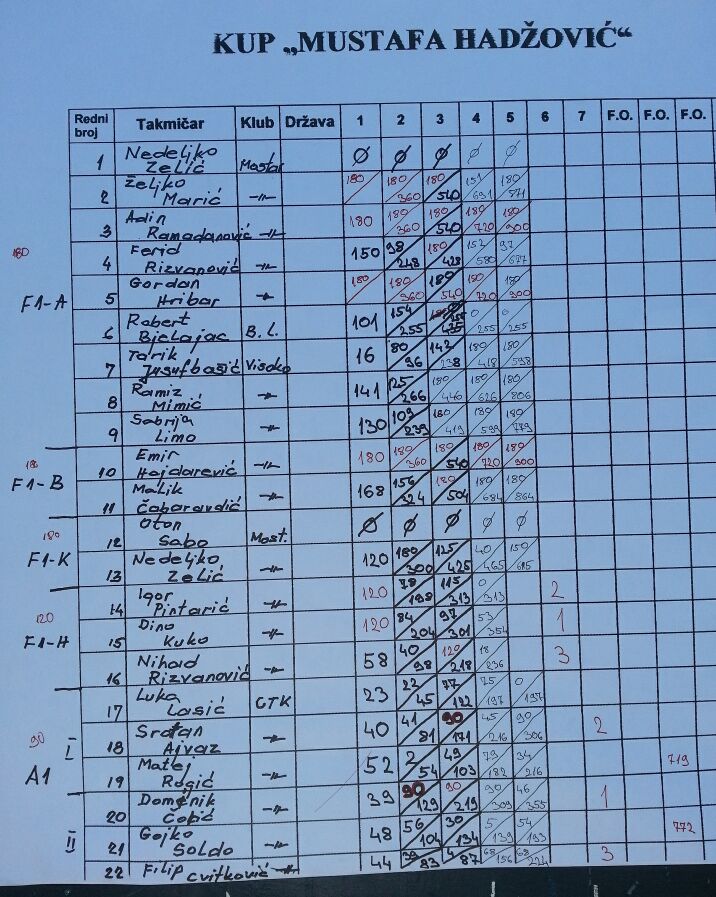 KUP „MUSTAFA HADŽOVIĆ“
Redni broj Takmičar Klub Država 1 2 3 4 5 6 7 F.O. F.O. F.O.
1 Nedeljko Zelić Mostar Ø Ø Ø Ø Ø
2 Željko Marić -||- 180 180/360 180/540 151/691 180/871
3 Adin Ramadanović -||- 180 180/360 180/540 180/720 180/900
180
4 Ferid Rizvanović -||- 150 98/248 180/428 152/580 97/677
F1-A
5 Gordan Hribar -||- 180 180/360 180/540 180/720 180/900
6 Robert Bjelajac B.L. 101 154/255 0/255 0/255
7 Tarik Jusufbašić Visoko 16 80/96 142/238 180/418 180/598
8 Ramiz Mimić -||- 141 125/266 180/446 180/626 180/806
9 Sabrija Limo -||- 130 109/239 180/419 180/599 180/779
180
F1-B
10 Emir Hajdarević -||- 180 180/360 180/540 180/720 180/900
11 Malik Čabaravdić -||- 168 156/324 180/504 180/684 180/864
180
F1-K
12 Oton Sabo Most. Ø Ø Ø Ø Ø
13 Nedeljko Zelić -||- 120 180/300 125/425 40/465 150/615
120
F1-H
14 Igor Pintarić -||- 120 78/198 115/313 0/313 2
15 Dino Kuko -||- 120 84/204 97/301 53/354 1
16 Nihad Rizvanović -||- 58 40/98 120/218 18/236 3
90
A1
I
17 Luka Lasić CTK 23 22/45 77/122 75/197 0/197
18 Srđan Ajvaz -||- 40 41/81 90/171 45/216 90/306 2
19 Matej Rogić -||- 52 2/54 49/103 79/182 34/216 719
II
20 Domgnik Čopić -||- 39 90/129 90/219 90/309 46/355 1
21 Gojko Soldo -||- 48 56/104 30/134 5/139 54/193 772
22 Filip Cvitković -||- 44 39/83 4/87 68/156 68/224 3